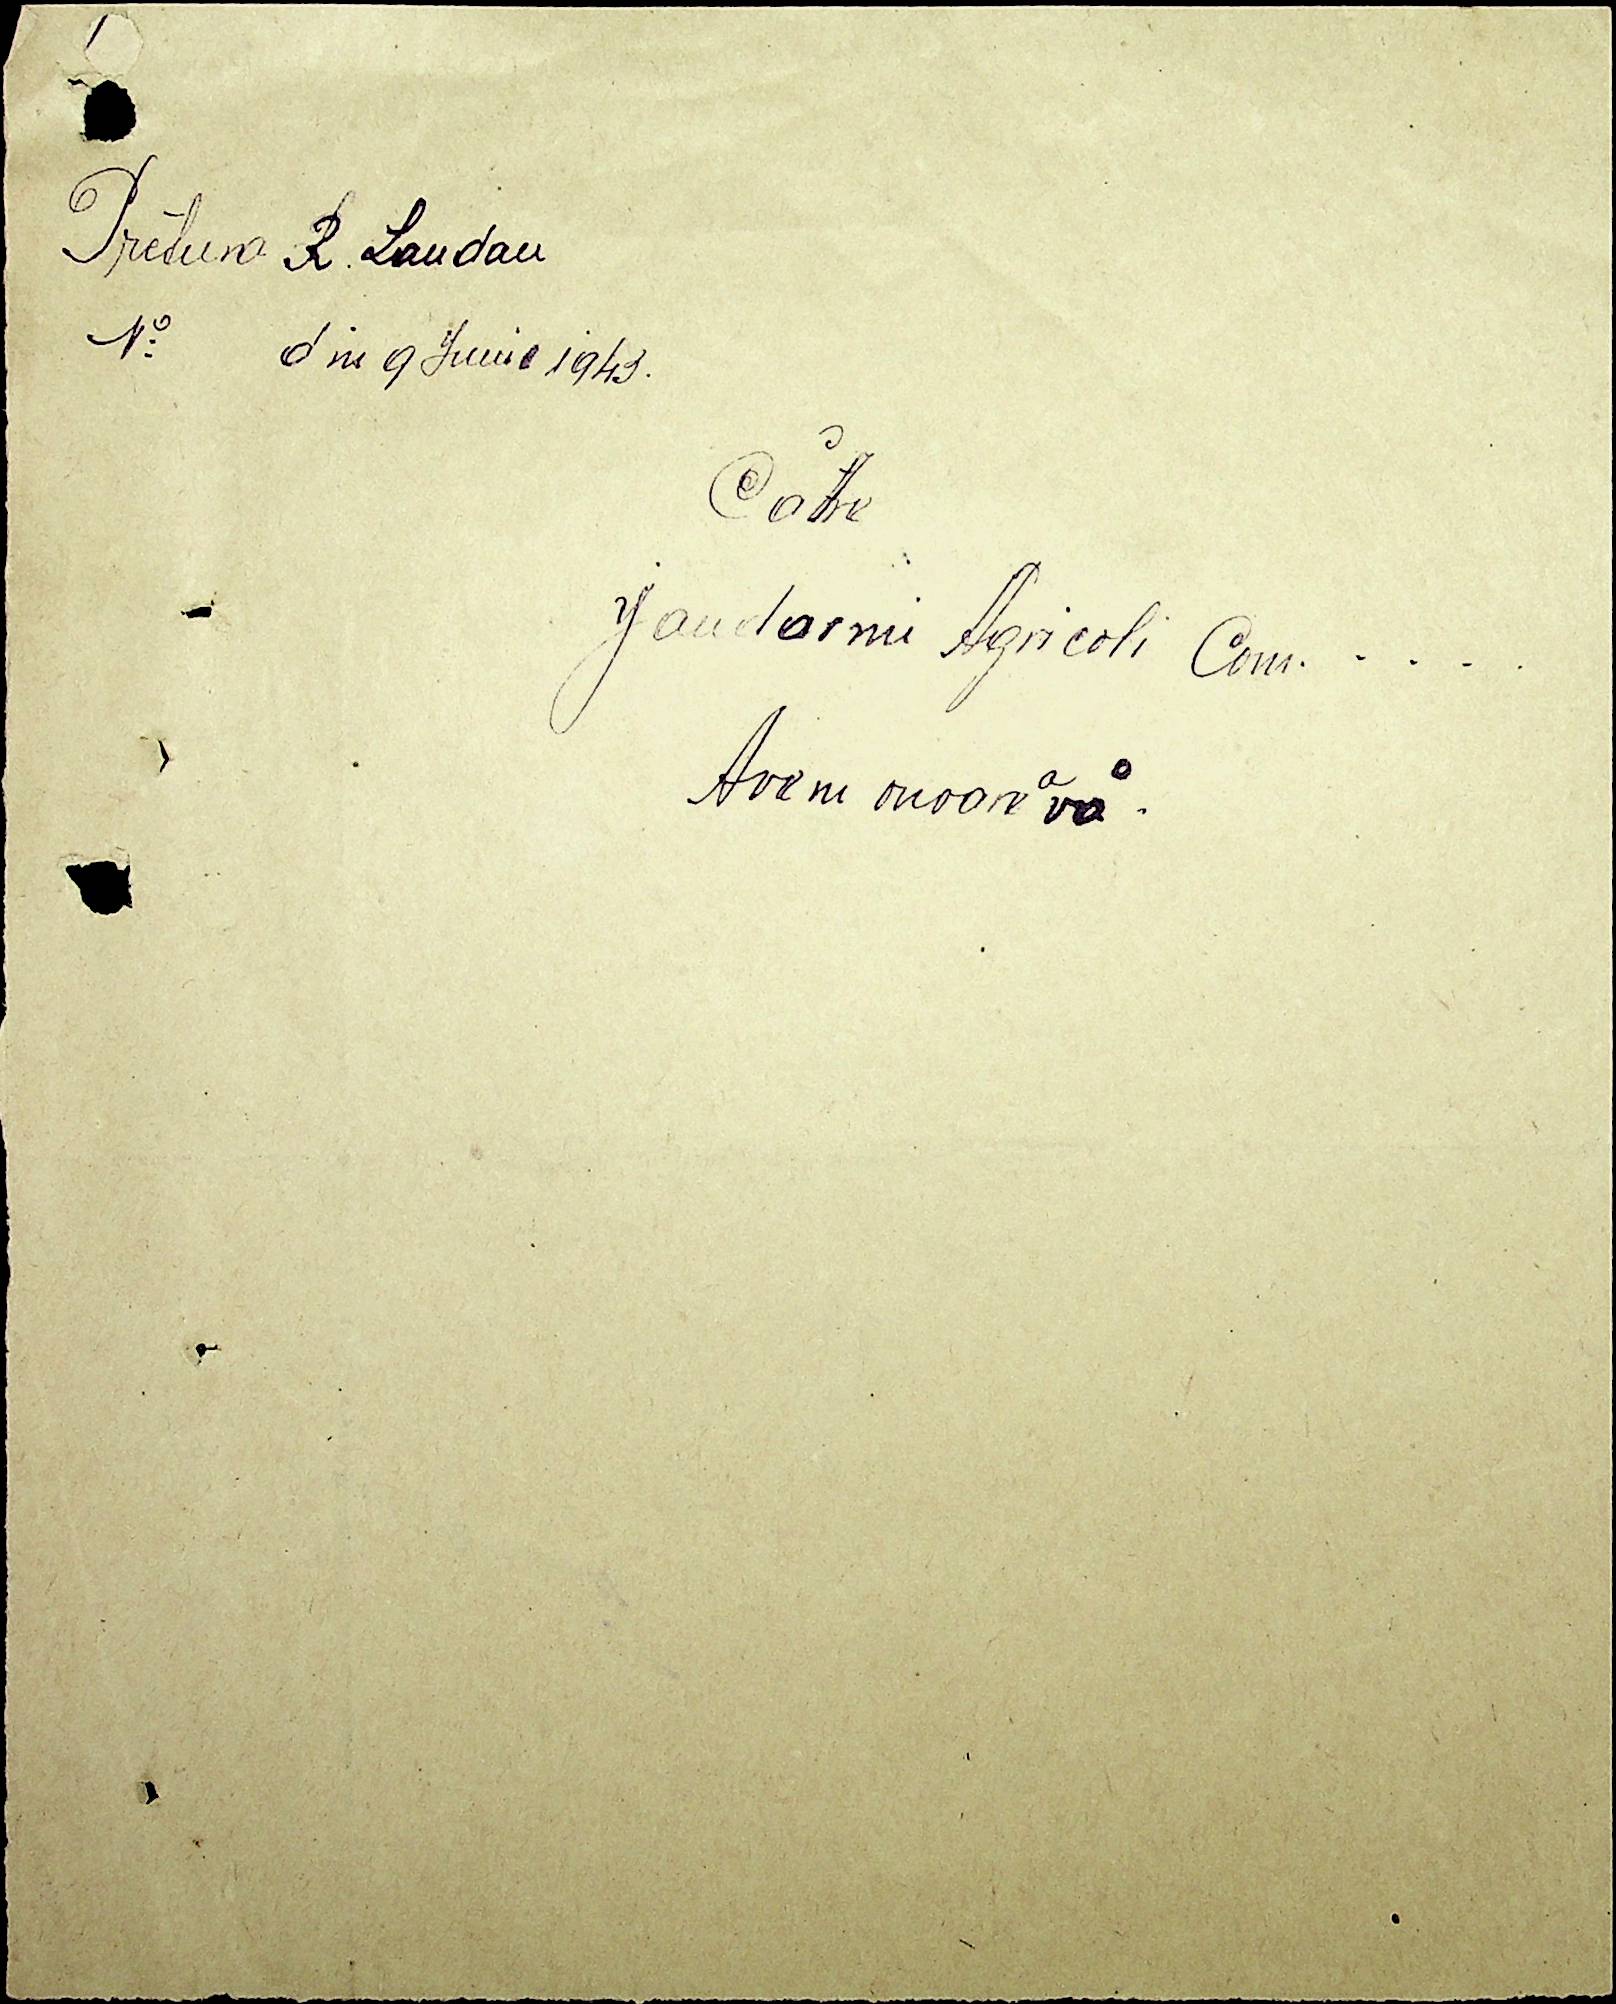 Pretura R. Landau
Nº din 9 Junie 1943.
Către
Jandarmii Agricoli Com. . . . .
Avem onoare a vă.